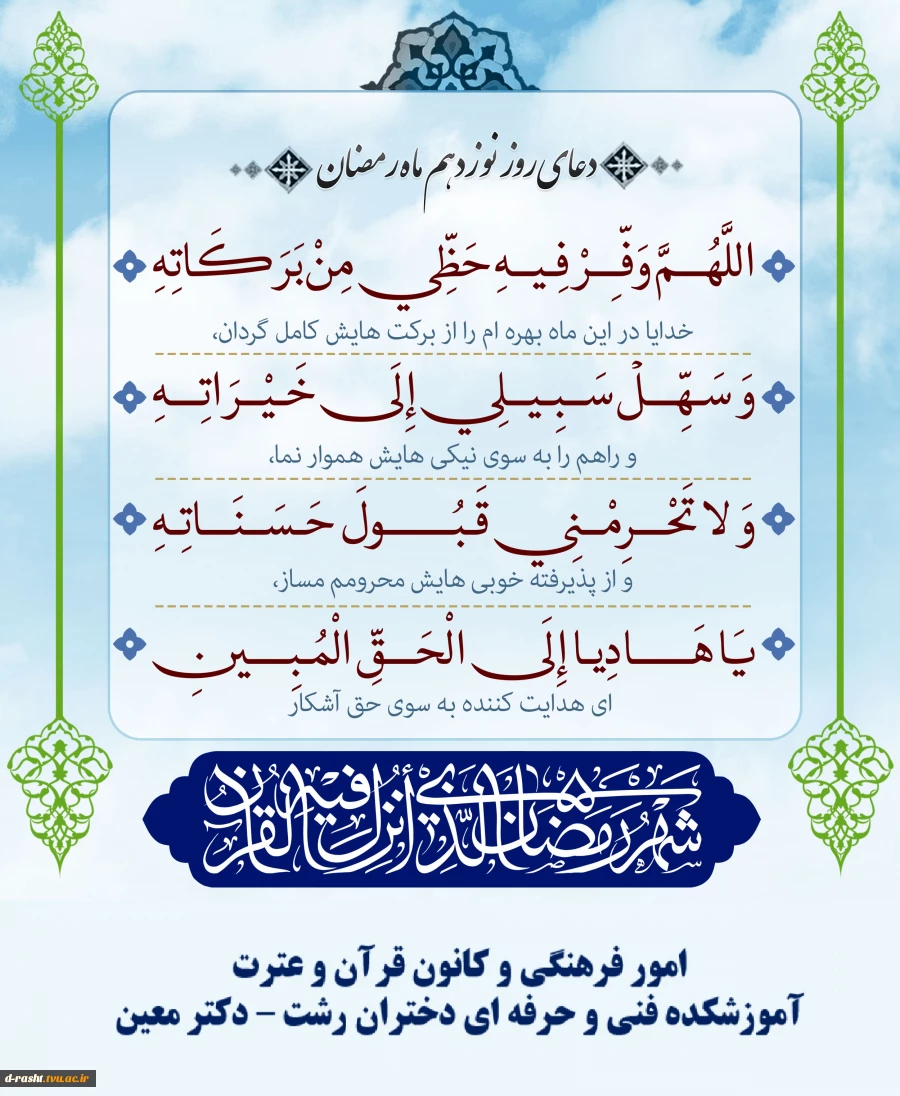 دعای روز نوزدهم ماه رمضان
اللَّهُمَّ وَفِّرْ فِيهِ حَظِّي مِنْ بَرَكَاتِهِ
خدایا در این ماه بهره ام را از برکت هایش کامل گردان،
وَ سَهِّلْ سَبِيلِي إِلَى خَيْرَاتِهِ
و راهم را به سوی نیکی هایش هموار نما،
وَ لا تَحْرِمْنِي قَبُولَ حَسَنَاتِهِ
و از پذیرفته خوبی هایش محرومم مساز،
يَا هَادِيا إِلَى الْحَقِّ الْمُبِينِ
ای هدایت کننده به سوی حق آشکار
شهر رمضان الذي أنزل فيه القرآن
امور فرهنگی و کانون قرآن و عترت
آموزشکده فنی و حرفه ای دختران رشت - دکتر معین
d-rasht.tvu.ac.ir